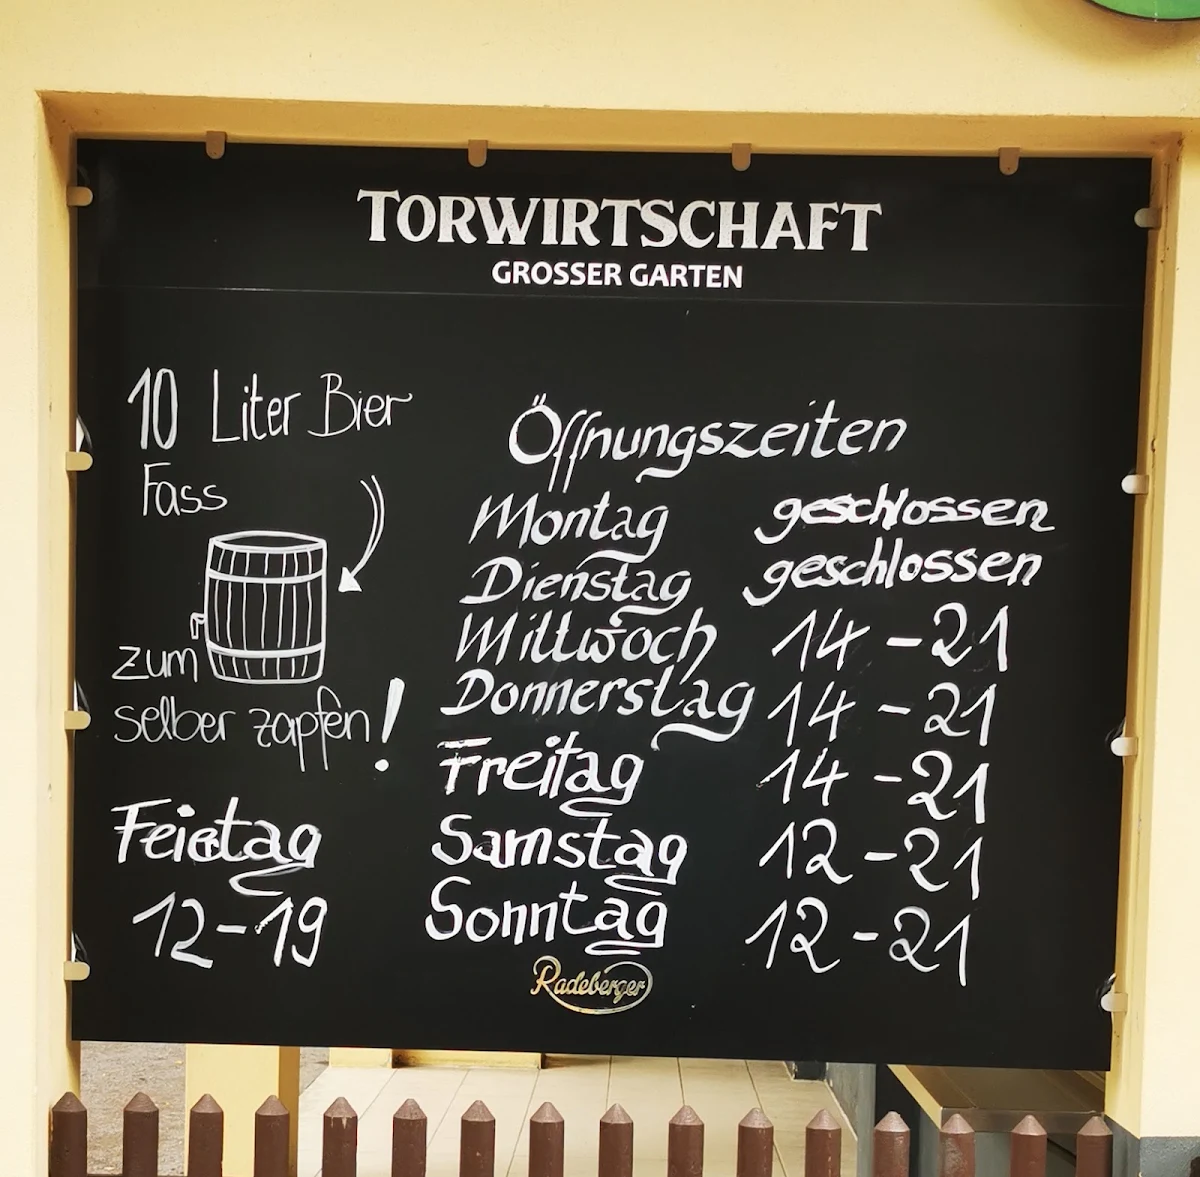 TORWIRTSCHAFT
GROSSER GARTEN
10 Liter Bier
Fass
zum
selber zapfen!
Feietag
12-19
Öffnungszeiten
Montag geschlossen
Dienstag geschlossen
Mittwoch 14-21
Donnerstag 14-21
Freitag 14-21
Samstag 12-21
Sonntag 12-21
Radeberger